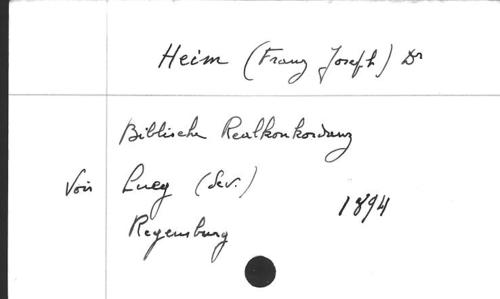 Heim (Franz Joseph) Dr
Biblische Realkonkordanz
Voir Lueg (Sev.)
Regensburg 1894